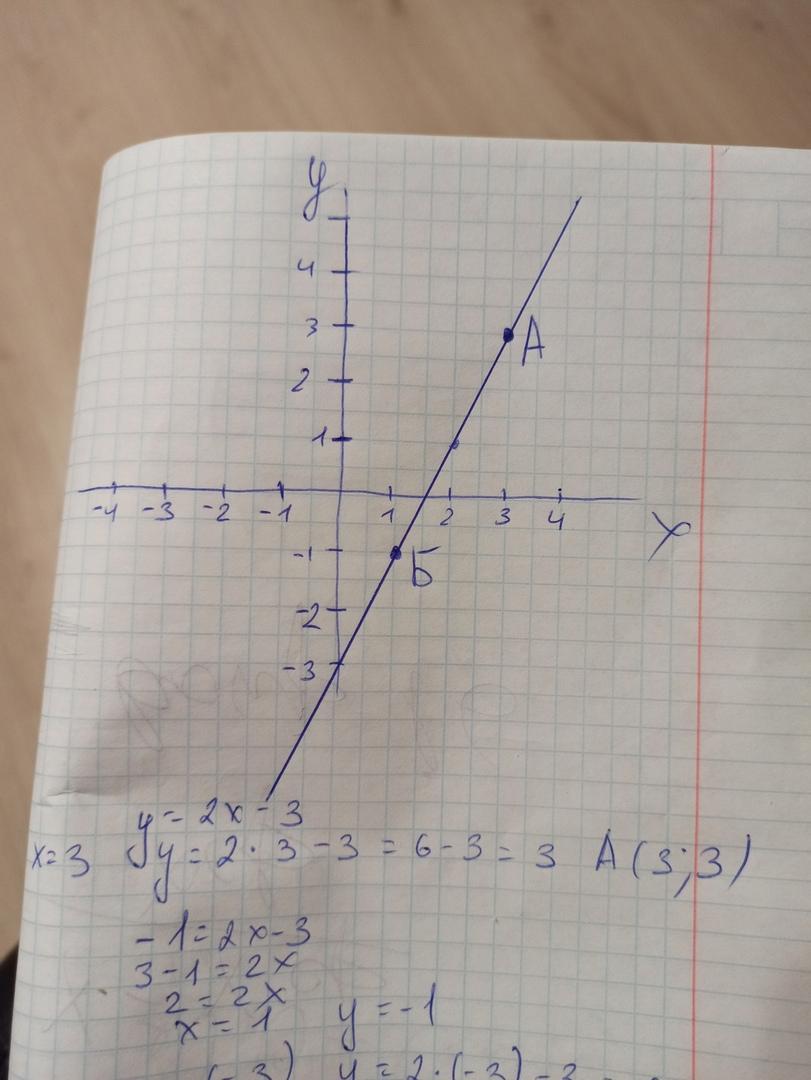 y
4
3
A
2
1
-4 -3 -2 -1 1 2 3 4
x
-1
Б
-2
-3
y = 2x - 3
x = 3 y = 2 · 3 - 3 = 6 - 3 = 3 A (3; 3)
- 1 = 2x - 3
3 - 1 = 2x
2 = 2x
x = 1 y = -1
(-3) y = 2·(-3) - 3